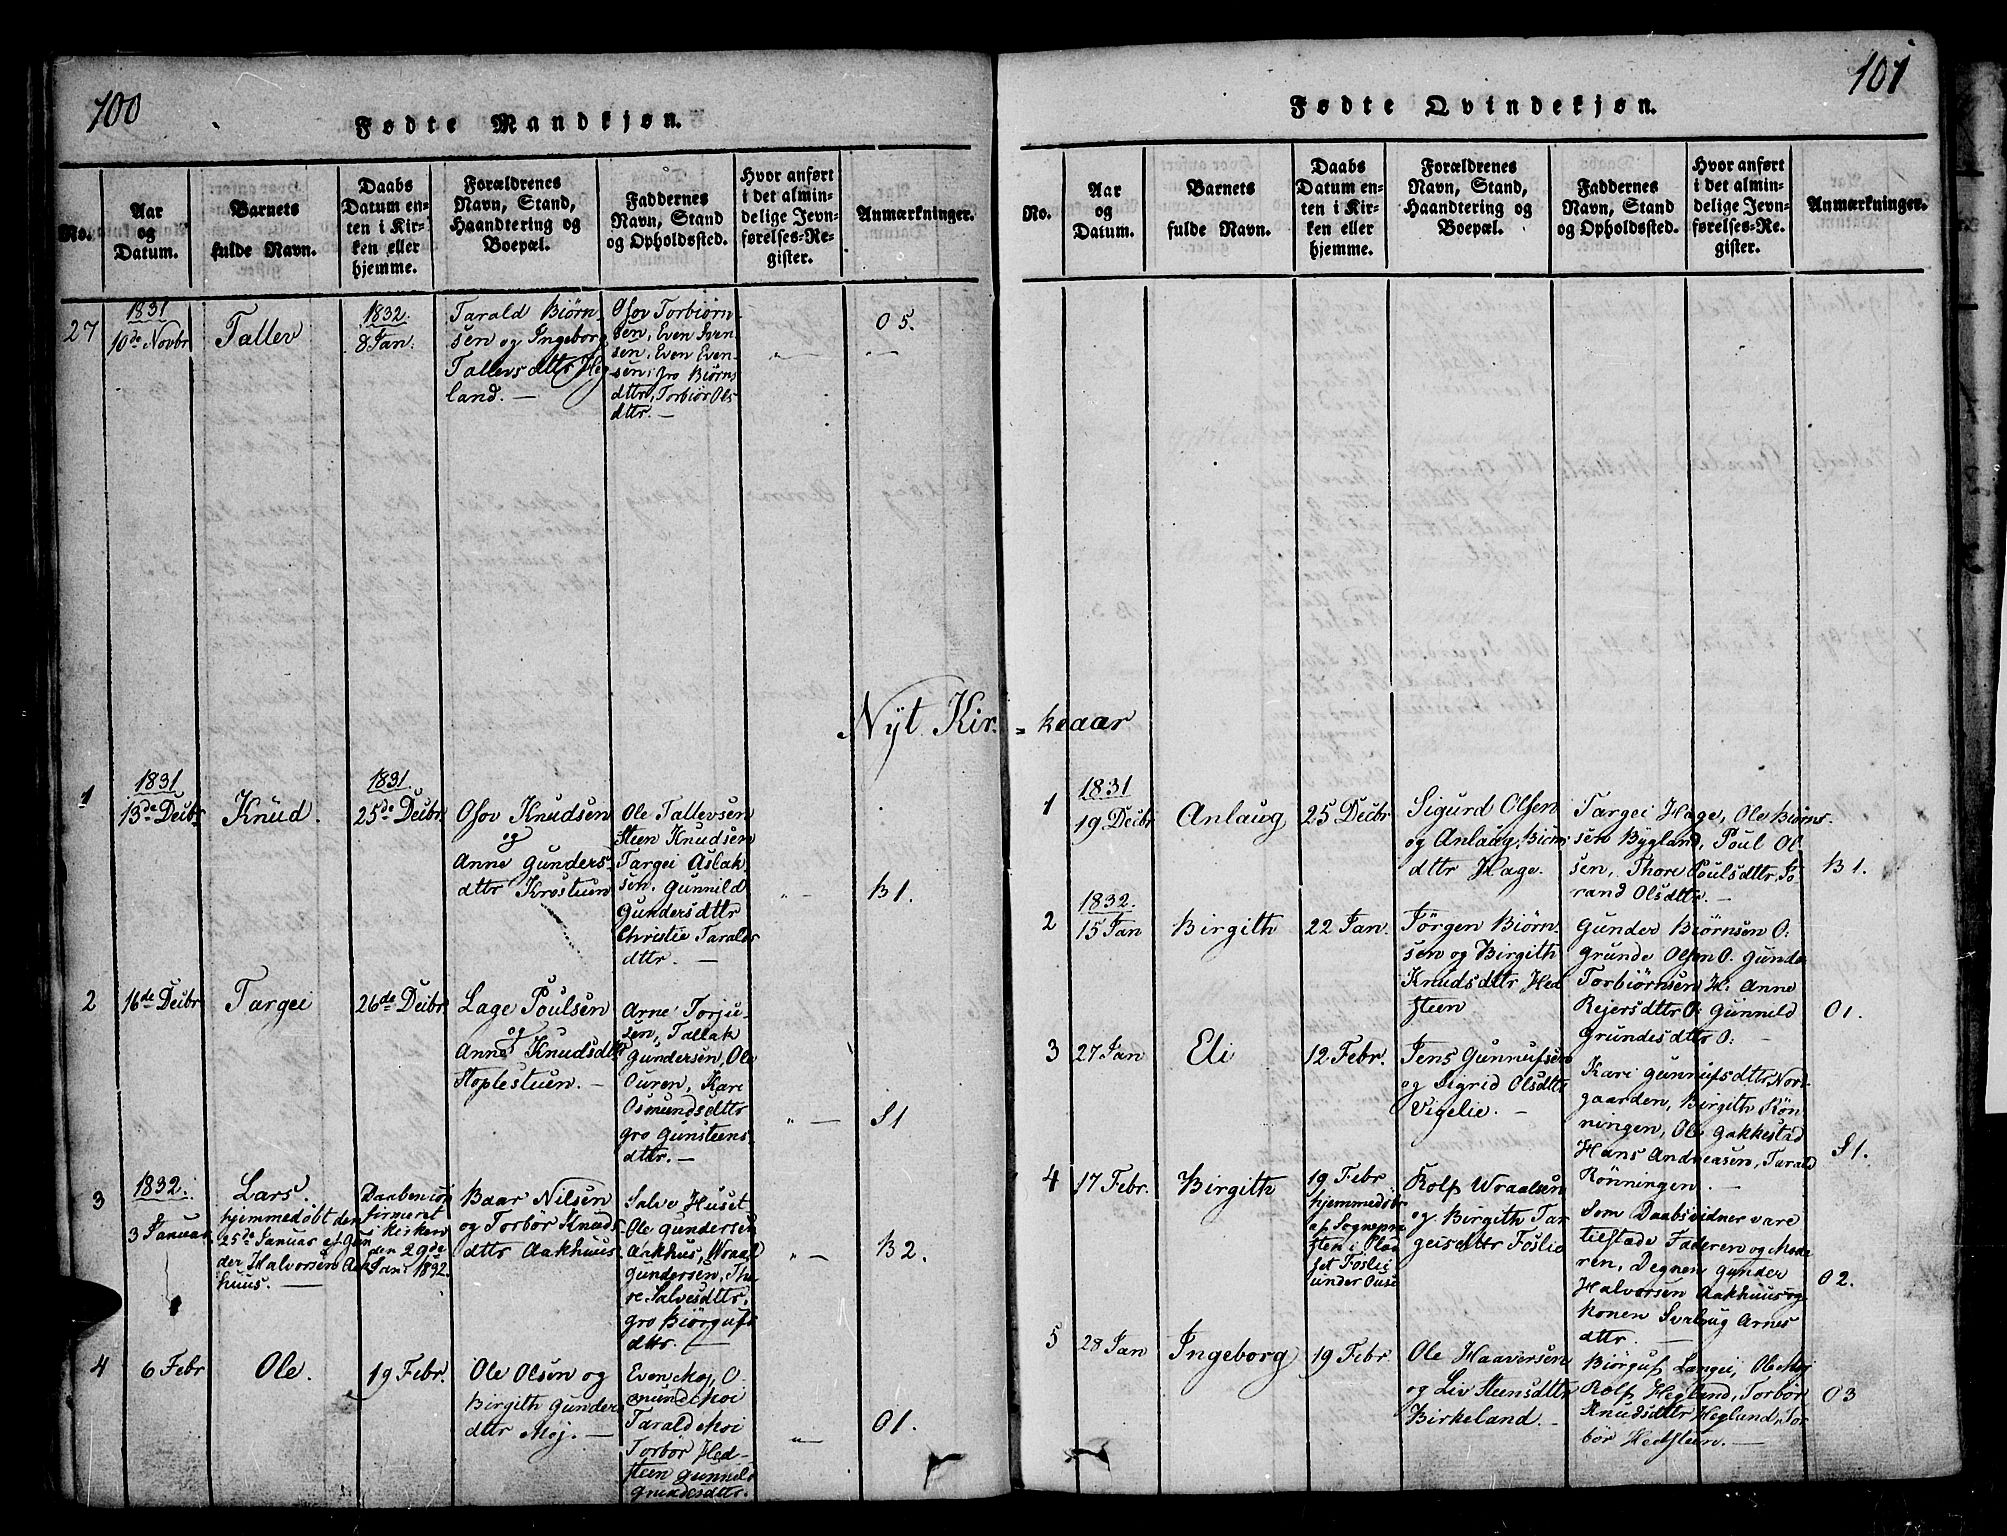 100
Fødte Mandkjøn.
No.
Aar
og
Datum.
Barnets
fulde Navn.
Daabs
Datum en-
ten i Kir-
ken eller
hjemme.
Forældrenes
Navn, Stand,
Haandtering og
Boepæl.
Faddernes
Navn, Stand
og Opholdssted.
Hvor anført
i det almin-
delige Jevn-
førelses-Re-
gister.
Anmærkninger.
27
1831
10de Novbr
Tallev
1832.
8 Jan.
Tarald Biørn
sen og Ingeborg
Tallevs dttr Heg
land. —
Osov Torbiørn-
sen, Even Iven-
sen, Even Even-
sen, Gro Biørns
dttr, Torbiør Ols
dttr. —
O 5.
Nyt Kir-
1
1831
13de Decbr
Knud.
1831.
25de Decbr
Osov Knudsen
og
Anne Gunders-
dttr Krostuen
Ole Tallevsen
Steen Knudsen
Targei Aslak-
sen, Gunnild
Gundersdttr
Christie Taralds
dttr. —
B 1.
2
16de Decbr
Targei
26de Decbr
Lage Poulsen
og
Anne Knudsdttr
Stoplestuen. —
Arne Torju-
sen, Tallak
Gundersen, Ole
Ouren, Kari
Osmundsdttr
Gro Gunsteens
dttr. —
S1
3
1832.
3 Januar
Lars.
hjemmedøbt den
25de Januar af Gun
der Halvorsen Aak
huus. —
Daaben con
firmeret
i Kirken
den 29de
Jan: 1832.
Baar Nilsen
og Torbør Knuds
dttr Aakhuus
Salve Huset
Ole Gundersen
Aakhus, Wraal
Gundersen, Tho
re Salvesdttr,
Gro Biørgufs
dttr. —
B 2.
4
6 Febr
Ole.
19 Febr.
Ole Olsen og
Birgith Gunders
dttr Moj. —
Even Moj, O-
smund Moi
Tarald Moi
Torbør Hed-
steen Gunnild
Grundesdttr.
O1.
101
Fødte Qvindekjøn.
No.
Aar
og
Datum.
Barnets
fulde Navn.
Daabs
Datum en-
ten i Kir-
ken eller
hjemme.
Forældrenes
Navn, Stand,
Haandtering og
Boepæl.
Faddernes
Navn, Stand
og Opholdssted.
Hvor anført
i det almin-
delige Jevn-
førelses-Re-
gister.
Anmærkninger.
= keaar
1
1831
19 Decbr
Anlaug
25 Decbr
Sigurd Olsen
og Anlaug Biørns
dttr Hage.
Targei Hage, Ole Biørns-
sen Bygland, Poul Ol
sen, Thore Poulsdttr, Jo
rand Olsdttr. —
B 1.
2
1832.
15 Jan
Birgith
22 Jan.
Jörgen Biørn-
sen og Birgith
Knudsdttr Hed
steen
Gunder Biørnsen O:
Grunde Olsen O. Gunde
Torbiørnsen H. Anne
Rejersdttr O: Gunnild
Grundesdttr O: —
O1.
3
27 Jan
Eli
12 Febr.
Jens Gunnufsen
og Sigrid Olsdttr
Vigelie. —
Kari Gunnufsdttr Nord
gaarden, Birgith Røn-
ningen, Ole Gakkestad
Hans Andreasen, Tarald
Rönningen. —
S1.
4
17 Febr.
Birgith
19 Febr
hjemmedøbt
af Sognepræ
sten i Plad
set Foslie
under Ouse
Rolf Wraalsen
og Birgith Tar
geisdttr Foslie
Som Daabsvidner vare
tilstæde Faderen og Mode
ren, Degnen Gunder
Halvorsen Aakhuus og
Konen Svalaug Arnes
dttr. —
O2.
5
28 Jan
Ingeborg
19 Febr
Ole Haaversen
og Liv Steensdttr
Birkeland. —
Biørguf Langei, Ole Moj
Rolf Hegland, Torbør
Knudsdttr Hegland, Tor
bør Hedsteen. —
O3